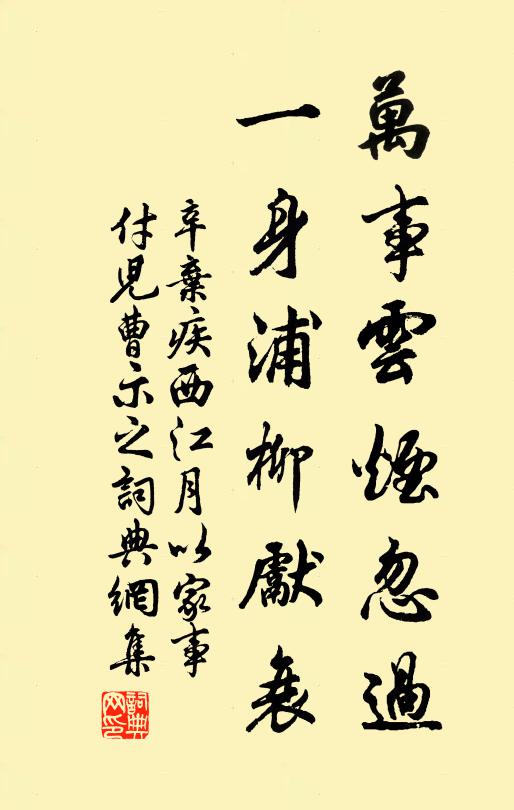 萬事雲煙忽過
一身浦柳獻衰
辛棄疾西江月以家事
付兒曹示之詞典網集
詞典
网印